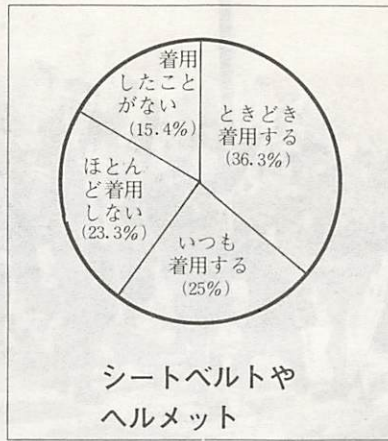 着用
したこと
がない
(15.4%)
ときどき
着用する
(36.3%)
ほとん
ど着用
しない
(23.3%)
いつも
着用する
(25%)
シートベルトや
ヘルメット